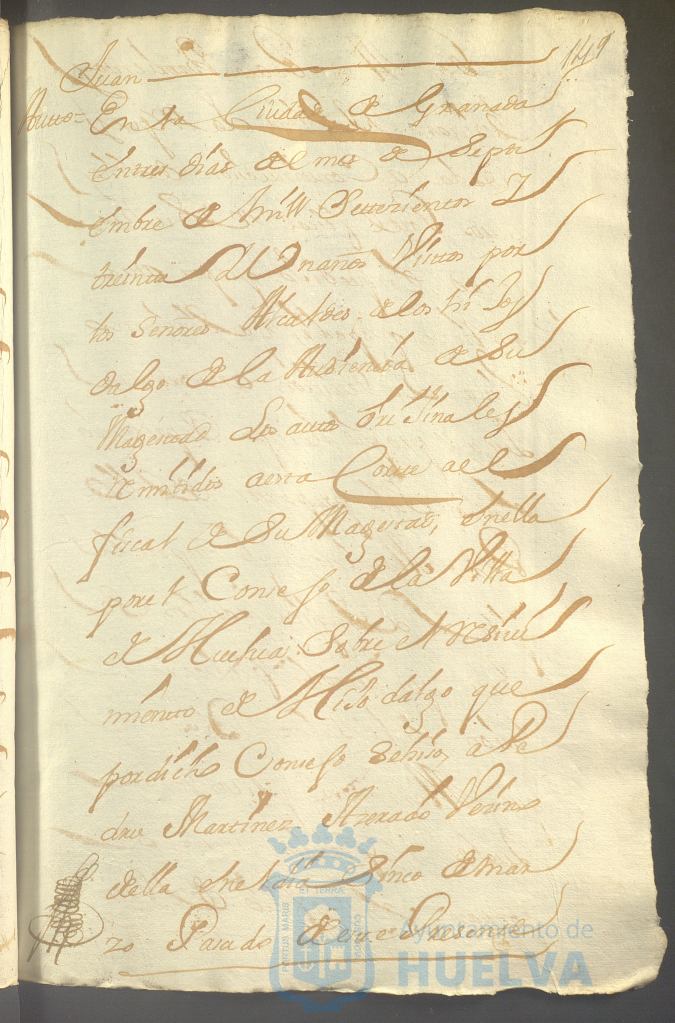 149
Juan
Autto = En la Ciudad de Granada
entres dias del mes de Septi
embre de mill Settezientos y
treinta y Un años Vistos por
los Señores Alcaldes de los hijos
dalgo de la Audiencia de Su
Magestad Los autos originales
remitidos aesta Corte a el
fiscal de Su Magestad, enella
por el Consejo de la Villa
de Huelva Sobre el reciui
miento de Hijodalgo que
por dicho Consejo Sehiso, a Pe
dro Martinez Azerado Vezino
della en el dia Sinco de mar
zo Pasado deeste Presente
Ayuntamiento de
HUELVA
PORTUS MARIS
ET TERRAE
CUSTODIA